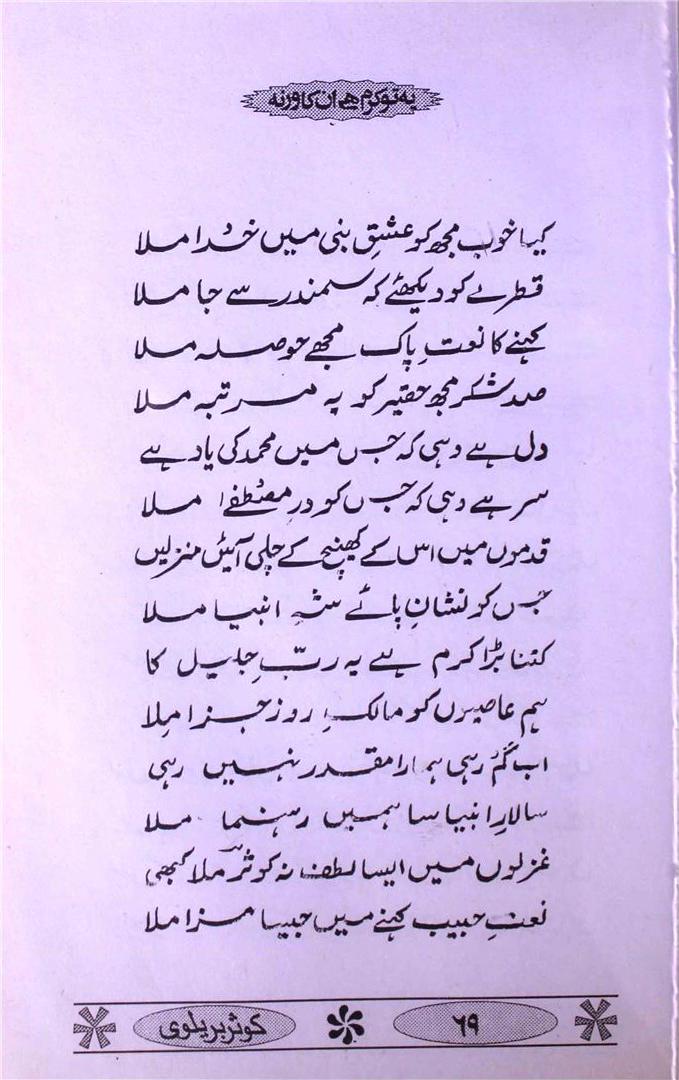 یہ تو کرم ہے ان کا ورنہ
کیا خوب مجھ کو عشقِ نبی میں خُدا ملا
قطرے کو دیکھئے کہ سمندر سے جا ملا
کہنے کا نعتِ پاک مجھے حوصلہ ملا
صد شکر مجھ حقیر کو یہ مرتبہ ملا
دل ہے وہی کہ جس میں محمد کی یاد ہے
سر ہے وہی کہ جس کو درِ مصطفےٰ ملا
قدموں میں اس کے کھینچ کے چلی آئیں منزلیں
جس کو نشانِ پائے شہِ انبیا ملا
کتنا بڑا کرم ہے یہ ربِّ جلیل کا
ہم عاصیوں کو مالکِ روزِ جزا مِلا
اب گُم رہی ہمارا مقدر نہیں رہی
سالارِ انبیا سا ہمیں رہنما ملا
غزلوں میں ایسا لطف نہ کوثرؔ ملا کبھی
نعتِ حبیب کہنے میں جیسا مزا ملا
۶۹
کوثر بریلوی